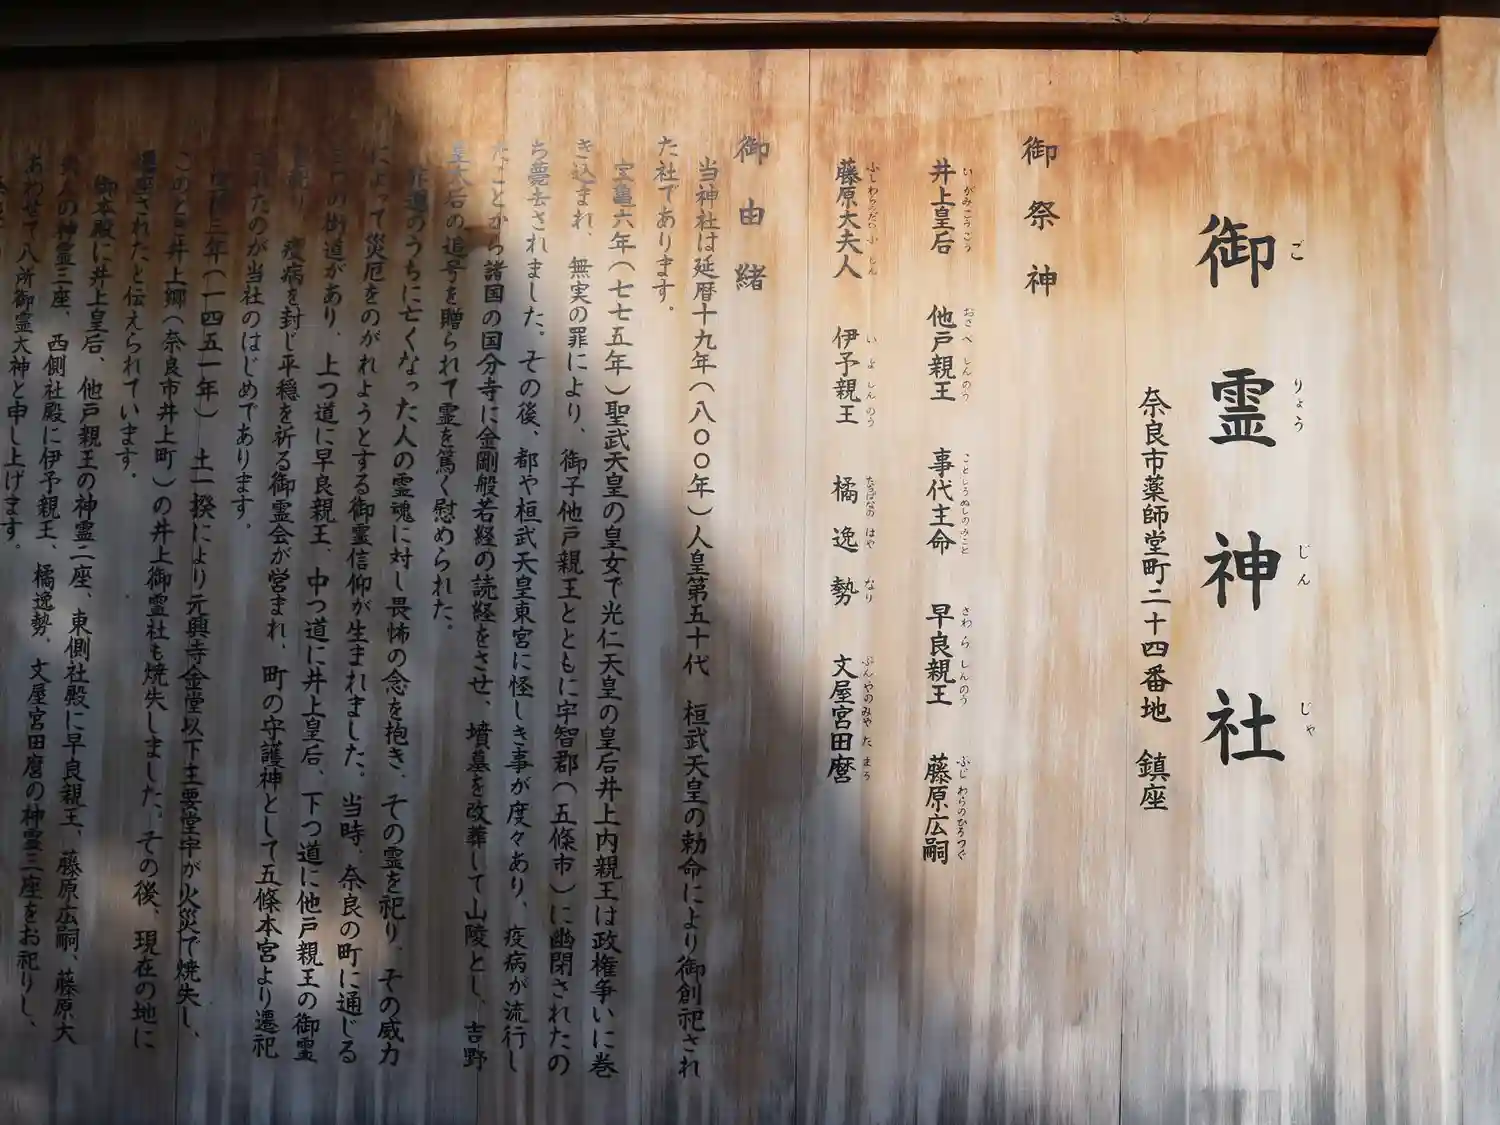 御霊神社
ごりょうじんじゃ
奈良市薬師堂町二十四番地 鎮座
御祭神
井上皇后 他戸親王 事代主命 早良親王 藤原広嗣
いがみこうごう おさべしんのう ことしろぬしのみこと さわらしんのう ふじわらのひろつぐ
藤原大夫人 伊予親王 橘逸勢 文屋宮田麿
ふじわらだいふじん いよしんのう たちばなのはやなり ぶんやのみやたまろ
御由緒
当神社は延暦十九年(八〇〇年)人皇第五十代 桓武天皇の勅命により御創祀され
た社であります。
宝亀六年(七七五年)聖武天皇の皇女で光仁天皇の皇后井上内親王は政権争いに巻
き込まれ、無実の罪により、御子他戸親王とともに宇智郡(五條市)に幽閉されたの
ち薨去されました。その後、都や桓武天皇東宮に怪しき事が度々あり、疫病が流行し
たことから諸国の国分寺に金剛般若経の読経をさせ、墳墓を改葬して山陵とし、吉野
皇太后の追号を贈られて霊を篤く慰められた。
非運のうちに亡くなった人の霊魂に対し畏怖の念を抱き、その霊を祀り、その威力
によって災厄をのがれようとする御霊信仰が生まれました。当時、奈良の町に通じる
つの街道があり、上つ道に早良親王、中つ道に井上皇后、下つ道に他戸親王の御霊
疫病を封じ平穏を祈る御霊会が営まれ、町の守護神として五條本宮より遷祀
されたのが当社のはじめであります。
三年(一四五一年) 土一揆により元興寺金堂以下主要堂宇が火災で焼失し、
このとき井上郷(奈良市井上町)の井上御霊社も焼失しました。その後、現在の地に
遷座されたと伝えられています。
御本殿に井上皇后、他戸親王の神霊二座、東側社殿に早良親王、藤原広嗣、藤原大
夫人の神霊三座、西側社殿に伊予親王、橘逸勢、文屋宮田麿の神霊三座をお祀りし、
あわせて八所御霊大神と申し上げます。